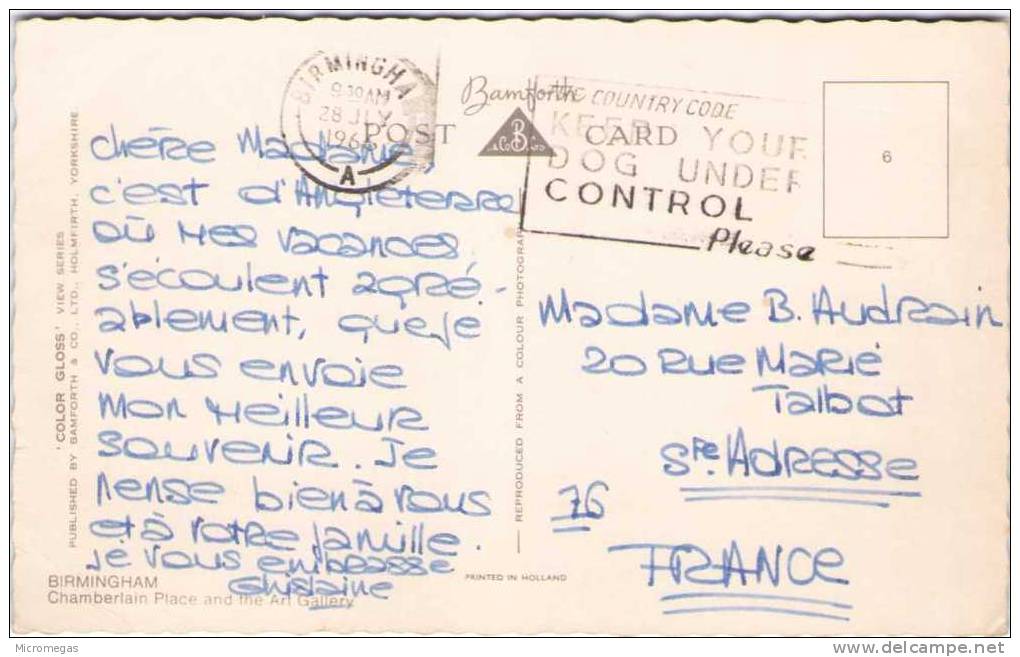 BIRMINGHAM
9.30 AM
28 JLY
196
A
Bamforth
POST CARD
B
& Co. LTD
THE COUNTRY CODE
KEEP YOUR
DOG UNDER
CONTROL
Please
6
Chère Madame,
c'est d'Angleterre
où mes vacances
s'écoulent agré-
ablement, que je
vous envoie
mon meilleur
souvenir. Je
pense bien à vous
et à votre famille.
je vous embrasse
Ghislaine
Madame B. Audrain
20 Rue Marie
Talbot
Ste. Adresse
76
FRANCE
'COLOR GLOSS' VIEW SERIES
PUBLISHED BY BAMFORTH & CO., LTD., HOLMFIRTH, YORKSHIRE
REPRODUCED FROM A COLOUR PHOTOGRAPH
BIRMINGHAM
Chamberlain Place and the Art Gallery
PRINTED IN HOLLAND
Micromegas
www.delcampe.net